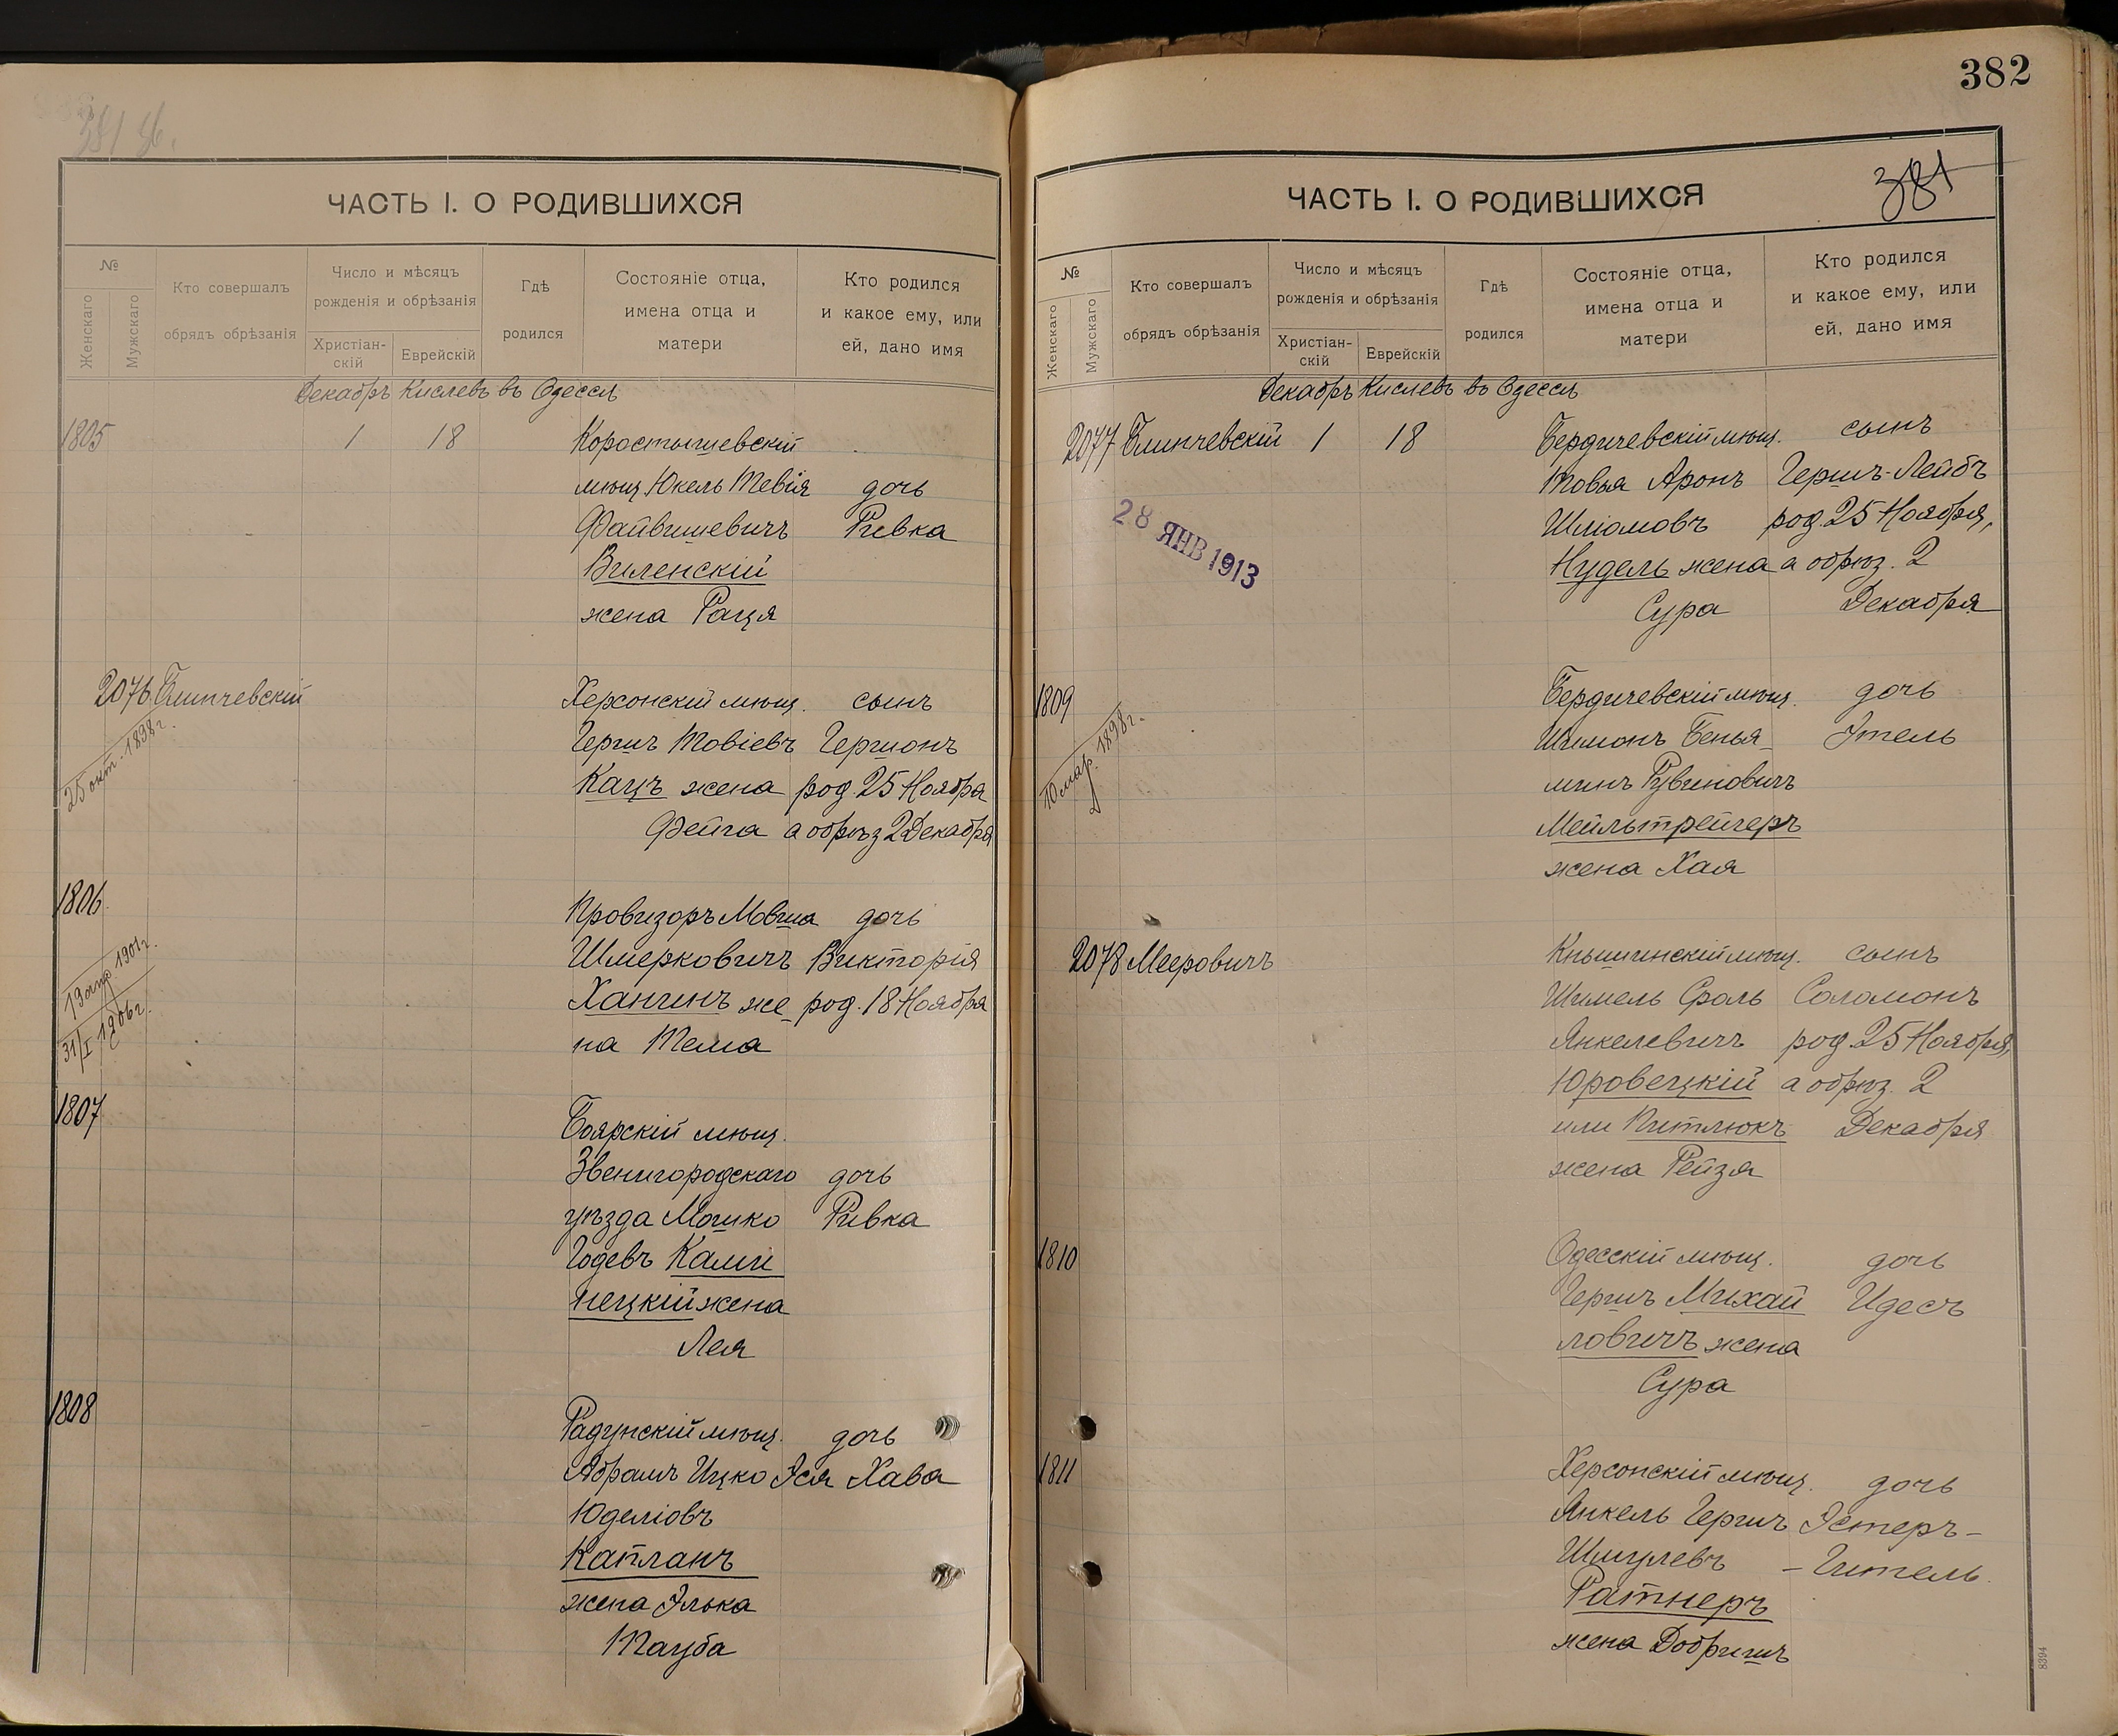 381 об.
ЧАСТЬ I. О РОДИВШИХСЯ
№
Женскаго
Мужскаго
Кто совершалъ
обрядъ обрѣзанія
Число и мѣсяцъ
рожденія и обрѣзанія
Христіан-
скій
Еврейскій
Гдѣ
родился
Состояніе отца,
имена отца и
матери
Кто родился
и какое ему, или
ей, дано имя
Декабрь Кислевъ въ Одессѣ
1805 1 18 Коростышевскій
мѣщ Юкель Тевія дочь
Файвишевичъ Ривка
Виленскій
жена Рация
2076 Блинчевскій Херсонскій мѣщ. сынъ
25 окт. 1898 г.
Гершъ Товіевъ Гершонъ
Кацъ жена род. 25 Ноября
Фейга а обрѣз 2 Декабря
1806 Провизоръ Мовша дочь
Шмерковичъ Викторія
19 апр. 1901 г.
Ханчинъ же род. 18 Ноября
31/I 1906 г.
на Тема
1807 Боярскій мѣщ.
Звенигородскаго дочь
уѣзда Мошко Ривка
Годевъ Ками
нецкій жена
Лея
1808 Радунскій мѣщ. дочь
Абрамъ Ицко Эся Хава
Юделіовъ
Капланъ
жена Элька
Тауба
382
ЧАСТЬ I. О РОДИВШИХСЯ
381
№
Женскаго
Мужскаго
Кто совершалъ
обрядъ обрѣзанія
Число и мѣсяцъ
рожденія и обрѣзанія
Христіан-
скій
Еврейскій
Гдѣ
родился
Состояніе отца,
имена отца и
матери
Кто родился
и какое ему, или
ей, дано имя
Декабрь Кислевъ въ Одессѣ
2077 Блинчевскій 1 18 Бердичевскій мѣщ. сынъ
Товья Аронъ Гершъ-Лейбъ
28 ЯНВ 1913
Шліомовъ род 25 Ноября,
Нудель жена а обрѣз. 2
Сура Декабря
1809 Бердичевскій мѣщ. дочь
10 мар. 1898 г.
Шимонъ Бенья Этель
минъ Рувиновичъ
Мейльтрейгеръ
жена Хая
2078 Мееровичъ Кнышинскій мѣщ. сынъ
Шмель Сроль Соломонъ
Янкелевичъ род. 25 Ноября,
Юровецкій а обрѣз. 2
или Питлюкъ Декабря
жена Рейзя
1810 Одесскій мѣщ. дочь
Гершъ Михай Идесъ
ловичъ жена
Сура
1811 Херсонскій мѣщ. дочь
Янкель Гершъ Эстеръ-
Шмулевъ -Гитель
Ратнеръ
жена Добришъ
8394